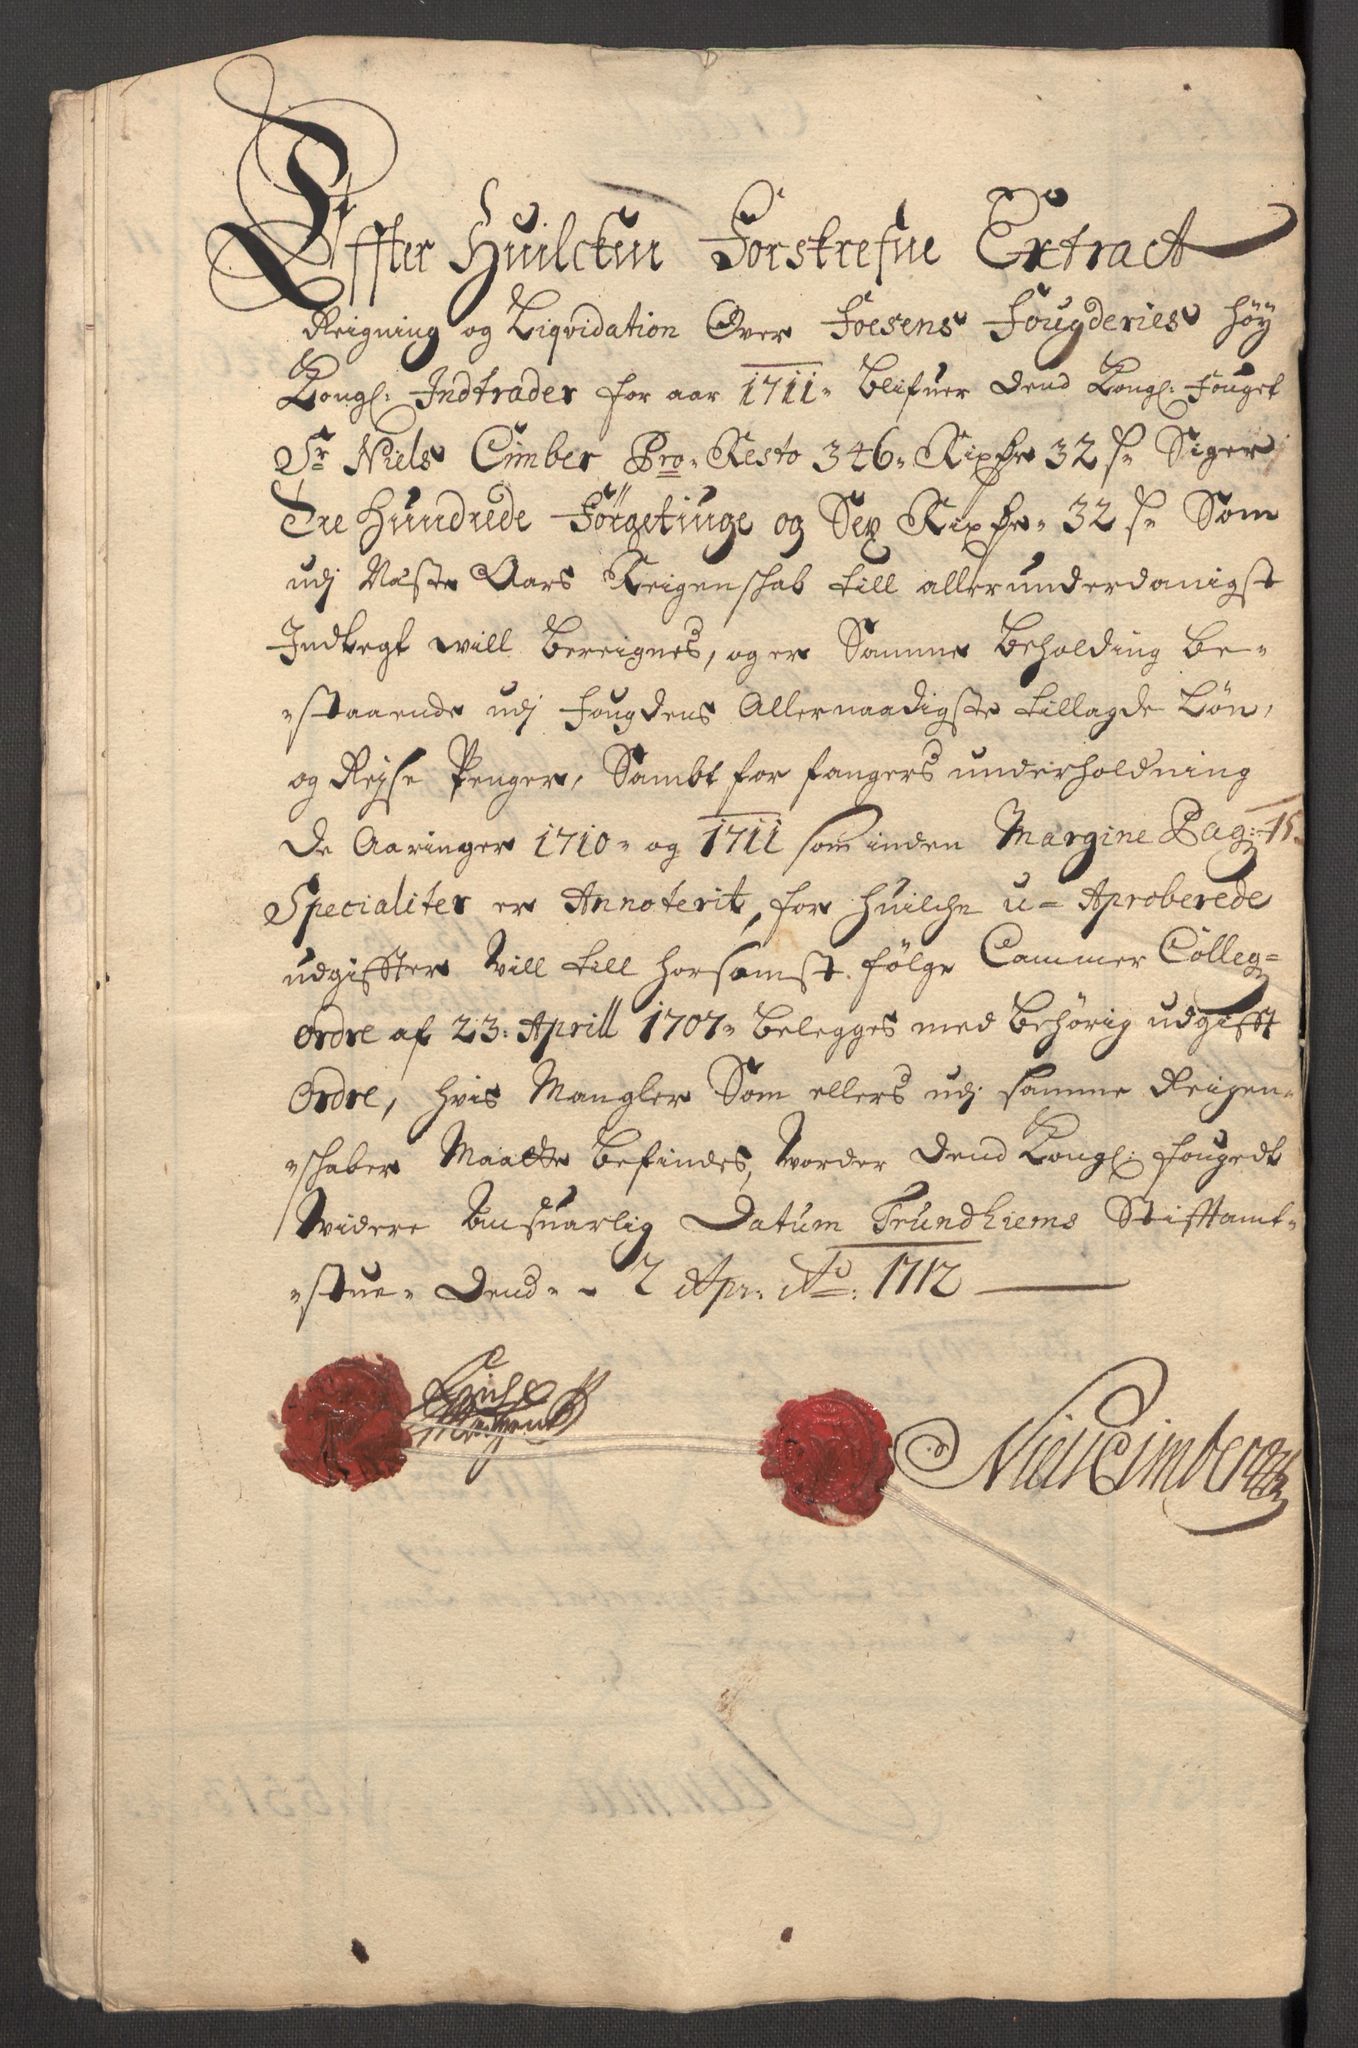 Effter Huilcken Forskrefne Extract
Reigning og Liqvidation Over Foesens Fougderies Høy
Kongl: Indtrader for aar 1711- blifuer dend Kongl: Fouget
Sr Niels Cimber Pro- Resto 346- Rixdr 32 s- Siger
Tre Hundrede Förgetiuge og Sex Rixdr- 32 s- Som
udj Næste Aars Reigenschab till allerunderdanigst
Indtegt will bereignes, og er Samme beholding be-
-staaende udj Fougdens Allernaadigste tillagde Løn,
og Rejse Penger, Sambt for fangers underholdning
De Aaringer 1710- og 1711 som inden Margine Pag: 15
Specialiter er Annoterit, for huilche u= Aproberede
udgiffter Vill till horsomst følge Cammer Colleg=
Ordre af 23: Aprill 1707- belegges med behørig udgifft
Ordre, hvis Mangler Som ellers udj samme Reigen-
-schaber Maatte befindes, Vorder dend Kongl: fougedt
Videre Ansuarlig Datum Trundhiems Stifftamt-
-stue- Dend- - 2 Apr: Ao: 1712
Niels Cimber